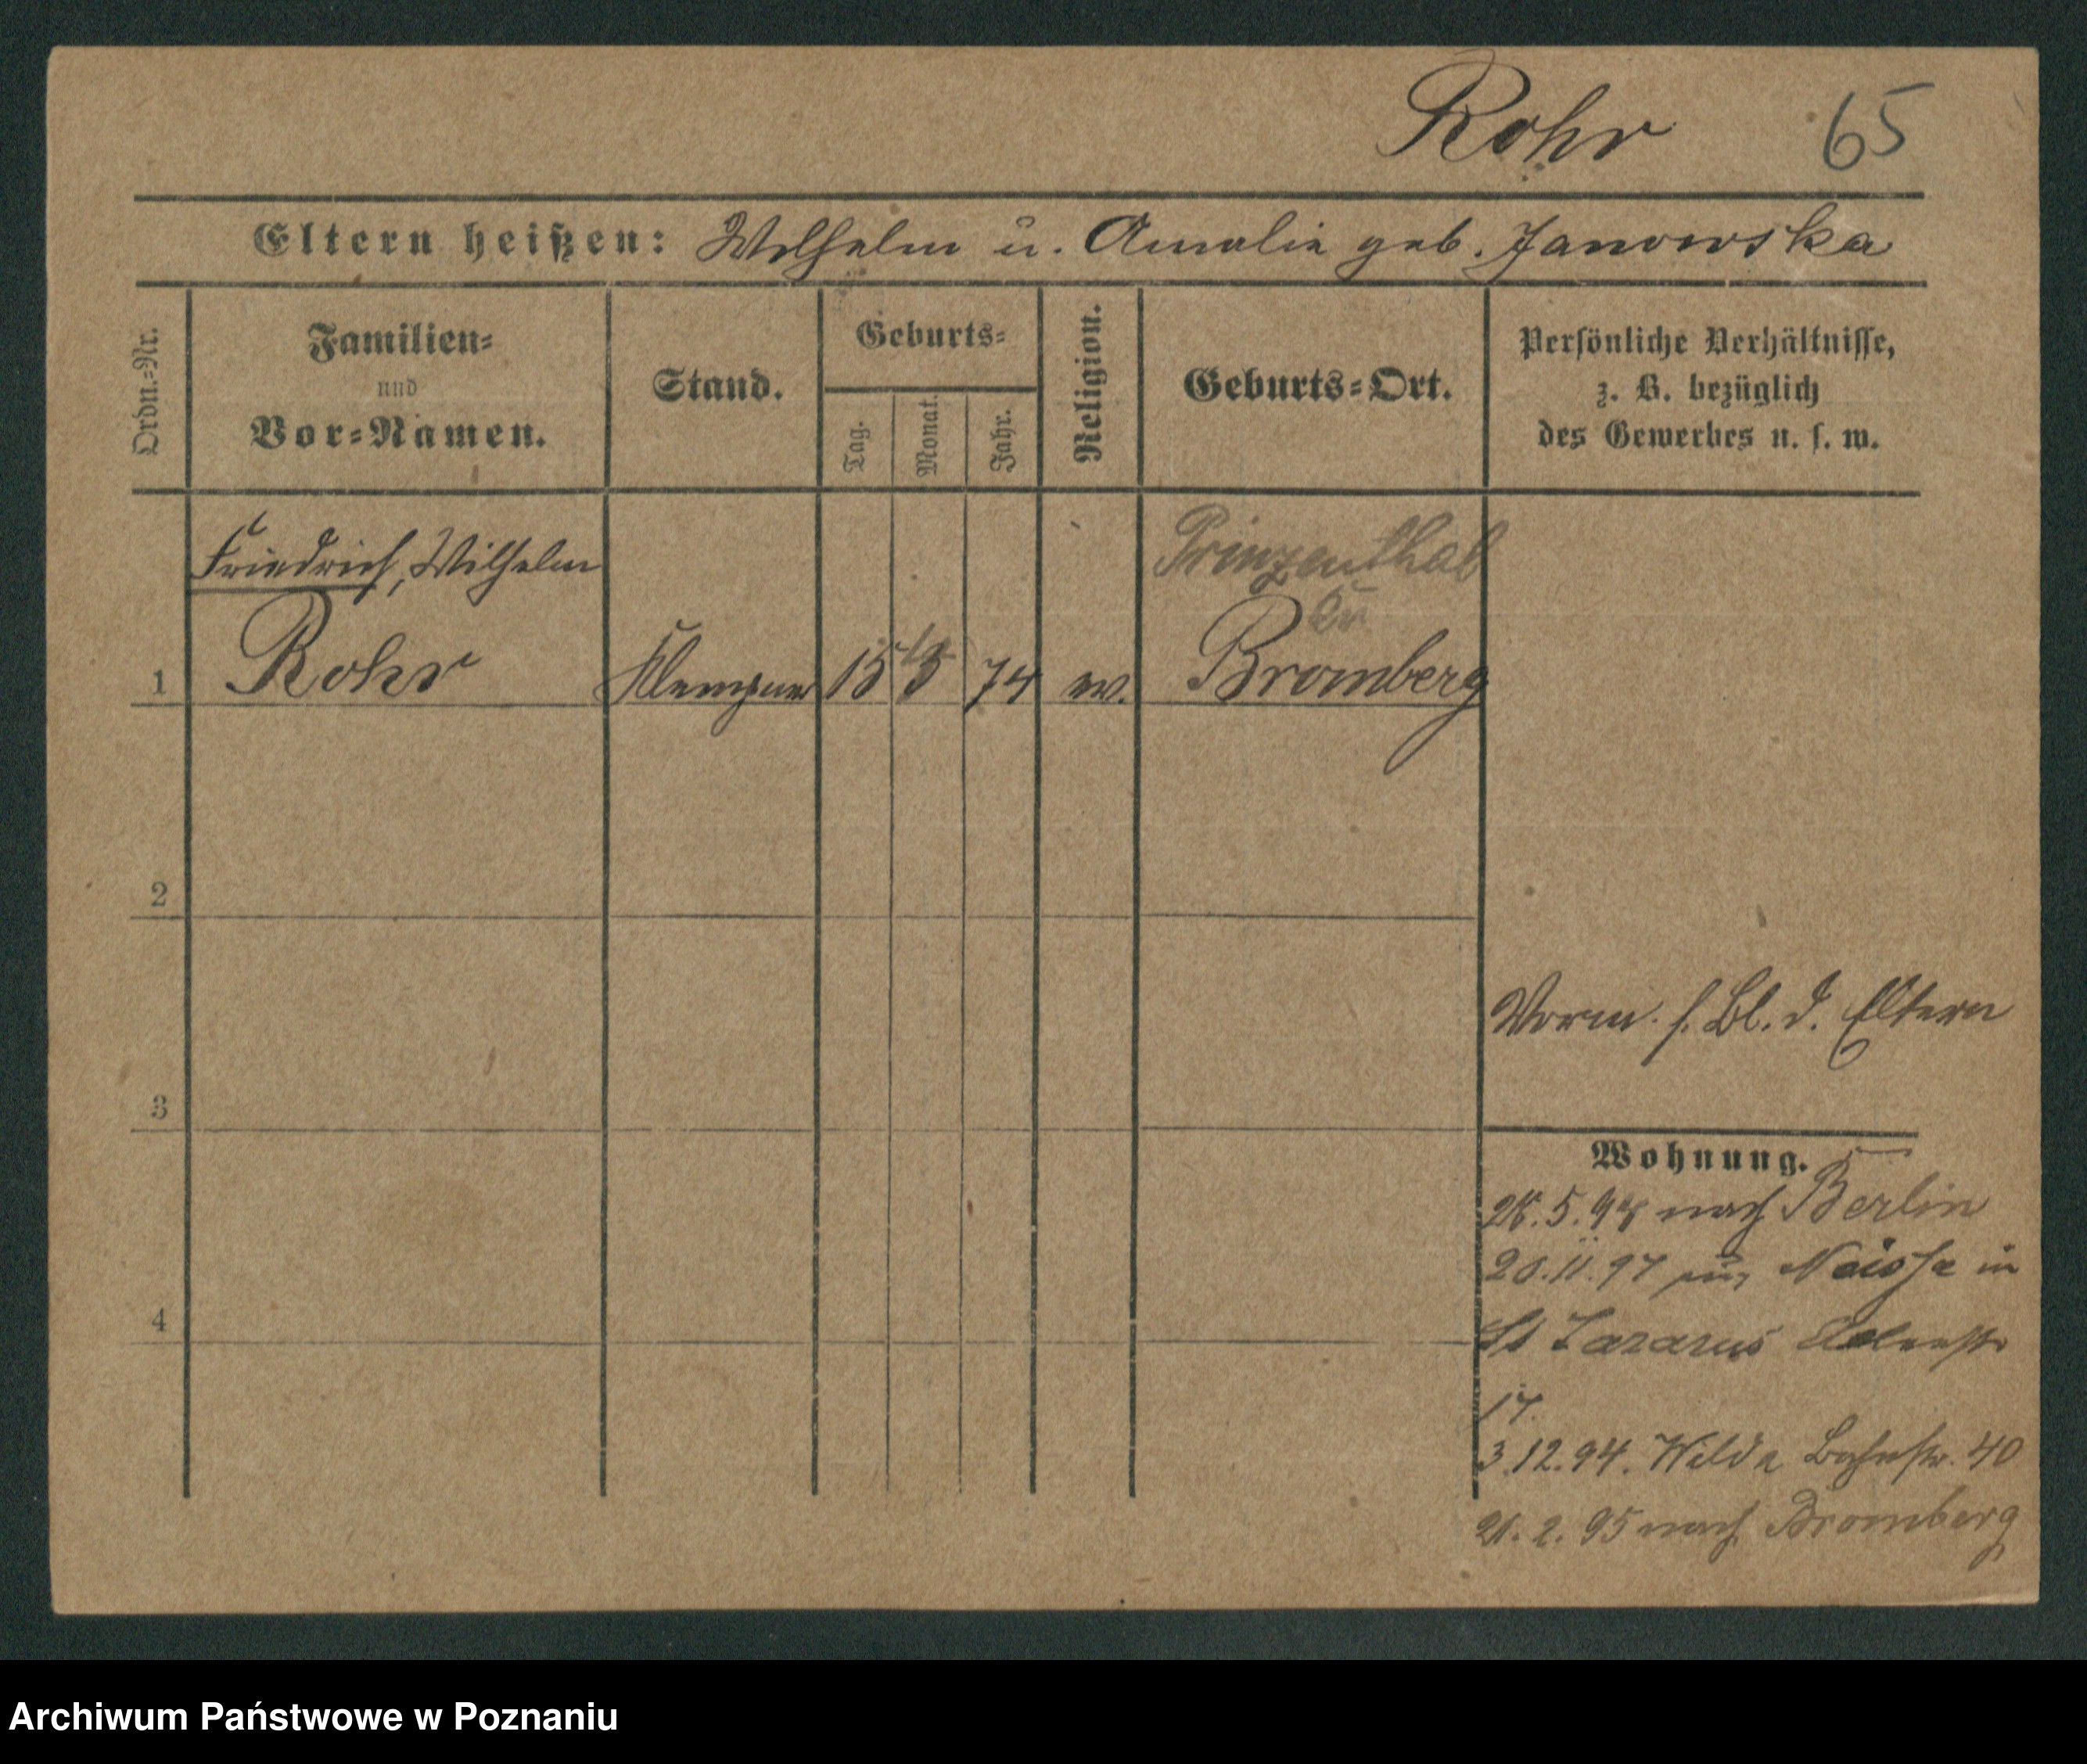 Rohr 65
Eltern heißen: Wilhelm u. Amalie geb. Janowska
Ordn.-Nr.
Familien-
und
Vor-Namen.
Stand.
Geburts-
Tag.
Monat.
Jahr.
Religion.
Geburts-Ort.
Persönliche Verhältnisse,
z. B. bezüglich
des Gewerbes u. s. w.
Friedrich, Wilhelm
Prinzenthal
Kr
1 Rohr Klempner 15 3 74 ev. Bromberg
2
3
4
Vorm. s. Bl. d. Eltern
Wohnung.
5. nach Berlin
20.11.97 aus Neisse in
St Lazarus
17.
3.12.94. Wilda Bahnstr. 40
21. 2. 95 nach Bromberg
Archiwum Państwowe w Poznaniu